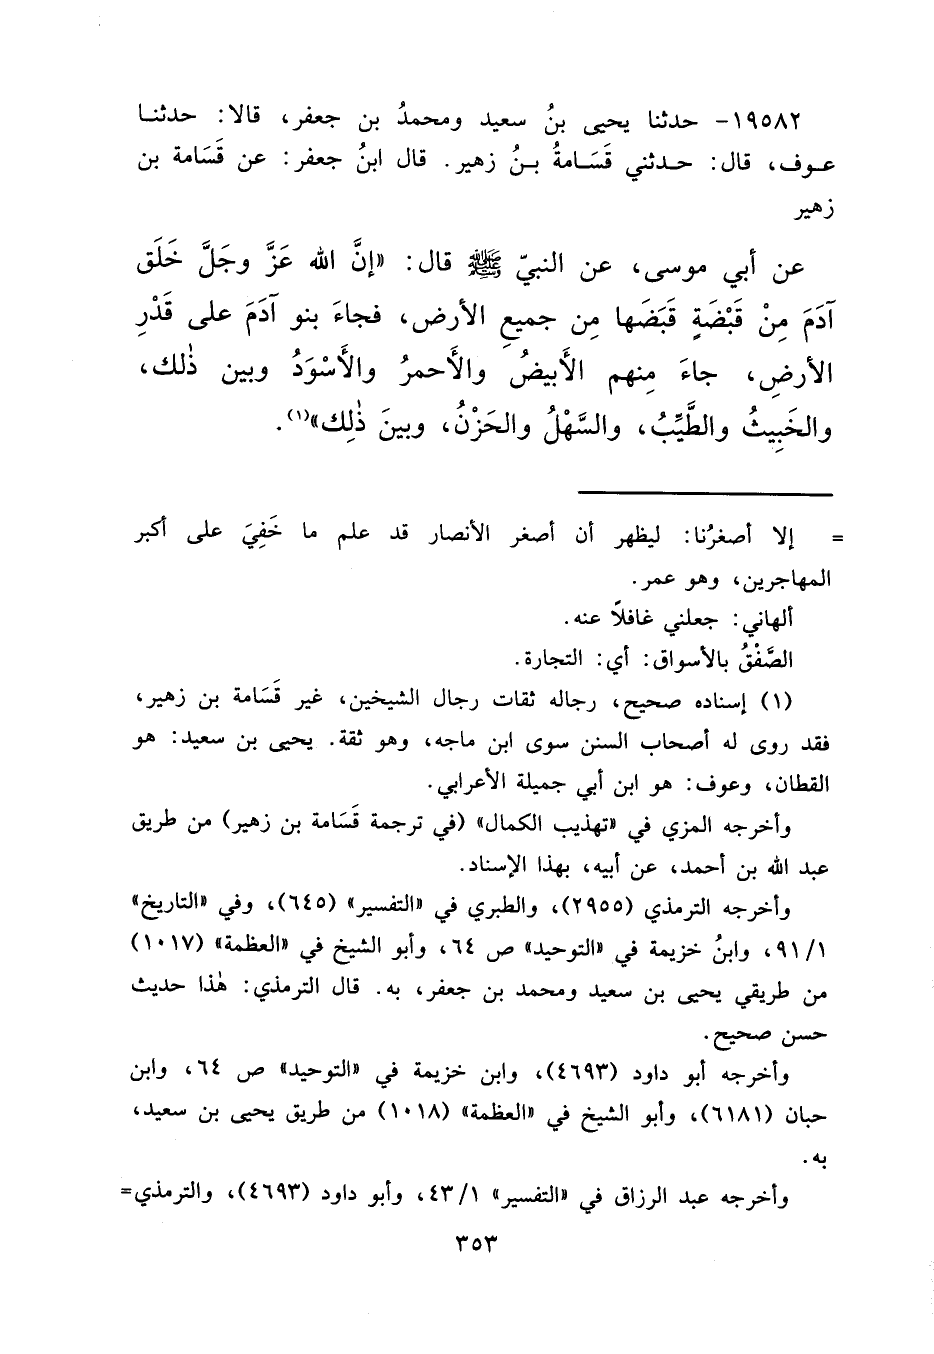 ١٩٥٨٢- حدثنا يحيى بنُ سعيد ومحمدُ بن جعفر، قالا: حدثنا
عوف، قال: حدثني قَسَامةُ بنُ زهير. قال ابنُ جعفر: عن قَسَامة بن
زهير
عن أبي موسى، عن النبيّ ﷺ قال: «إنَّ الله عَزَّ وجَلَّ خَلَق
آدَمَ مِنْ قَبْضَةٍ قَبَضَها مِن جميعِ الأرض، فجاءَ بنو آدَمَ على قَدْرِ
الأرضِ، جاءَ مِنهم الأَبيضُ والأَحمرُ والأَسْوَدُ وبين ذٰلك،
والخَبِيثُ والطَّيِّبُ، والسَّهْلُ والحَزْنُ، وبينَ ذٰلِك»(١).
= إلا أصغرُنا: ليظهر أن أصغر الأنصار قد علم ما خَفِيَ على أكبر
المهاجرين، وهو عمر.
ألهاني: جعلني غافلاً عنه.
الصَّفْقُ بالأسواق: أي: التجارة.
(١) إسناده صحيح، رجاله ثقات رجال الشيخين، غير قَسَامة بن زهير،
فقد روى له أصحاب السنن سوى ابن ماجه، وهو ثقة. يحيى بن سعيد: هو
القطان، وعوف: هو ابن أبي جميلة الأعرابي.
وأخرجه المزي في «تهذيب الكمال» (في ترجمة قَسَامة بن زهير) من طريق
عبد الله بن أحمد، عن أبيه، بهذا الإسناد.
وأخرجه الترمذي (٢٩٥٥)، والطبري في «التفسير» (٦٤٥)، وفي «التاريخ»
٩١/١، وابنُ خزيمة في «التوحيد» ص ٦٤، وأبو الشيخ في «العظمة» (١٠١٧)
من طريقي يحيى بن سعيد ومحمد بن جعفر، به. قال الترمذي: هٰذا حديث
حسن صحيح.
وأخرجه أبو داود (٤٦٩٣)، وابن خزيمة في «التوحيد» ص ٦٤، وابن
حبان (٦١٨١)، وأبو الشيخ في «العظمة» (١٠١٨) من طريق يحيى بن سعيد،
به.
وأخرجه عبد الرزاق في «التفسير» ٤٣/١، وأبو داود (٤٦٩٣)، والترمذي=
٣٥٣